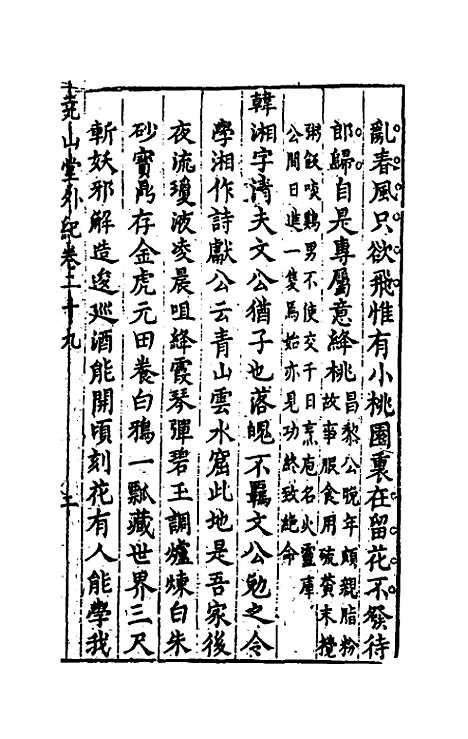 亂春風只欲飛惟有小桃園裏在留花不發待
郎歸自是專屬意絳桃昌黎公晚年頗親脂粉故事服食用硫黃末攪
粥飯啖鷄男不使交千日烹庖名火靈庫
公間日進一隻焉始亦見功終致絶命
韓湘字清夫文公猶子也落魄不羈文公勉之令
學湘作詩獻公云青山雲水窟此地是吾家後
夜流瓊液凌晨咀絳霞琴彈碧玉調爐煉白朱
砂寳鼎存金虎元田養白鴉一瓢藏世界三尺
斬妖邪解造逡廵酒能開頃刻花有人能學我
堯山堂外紀卷二十九